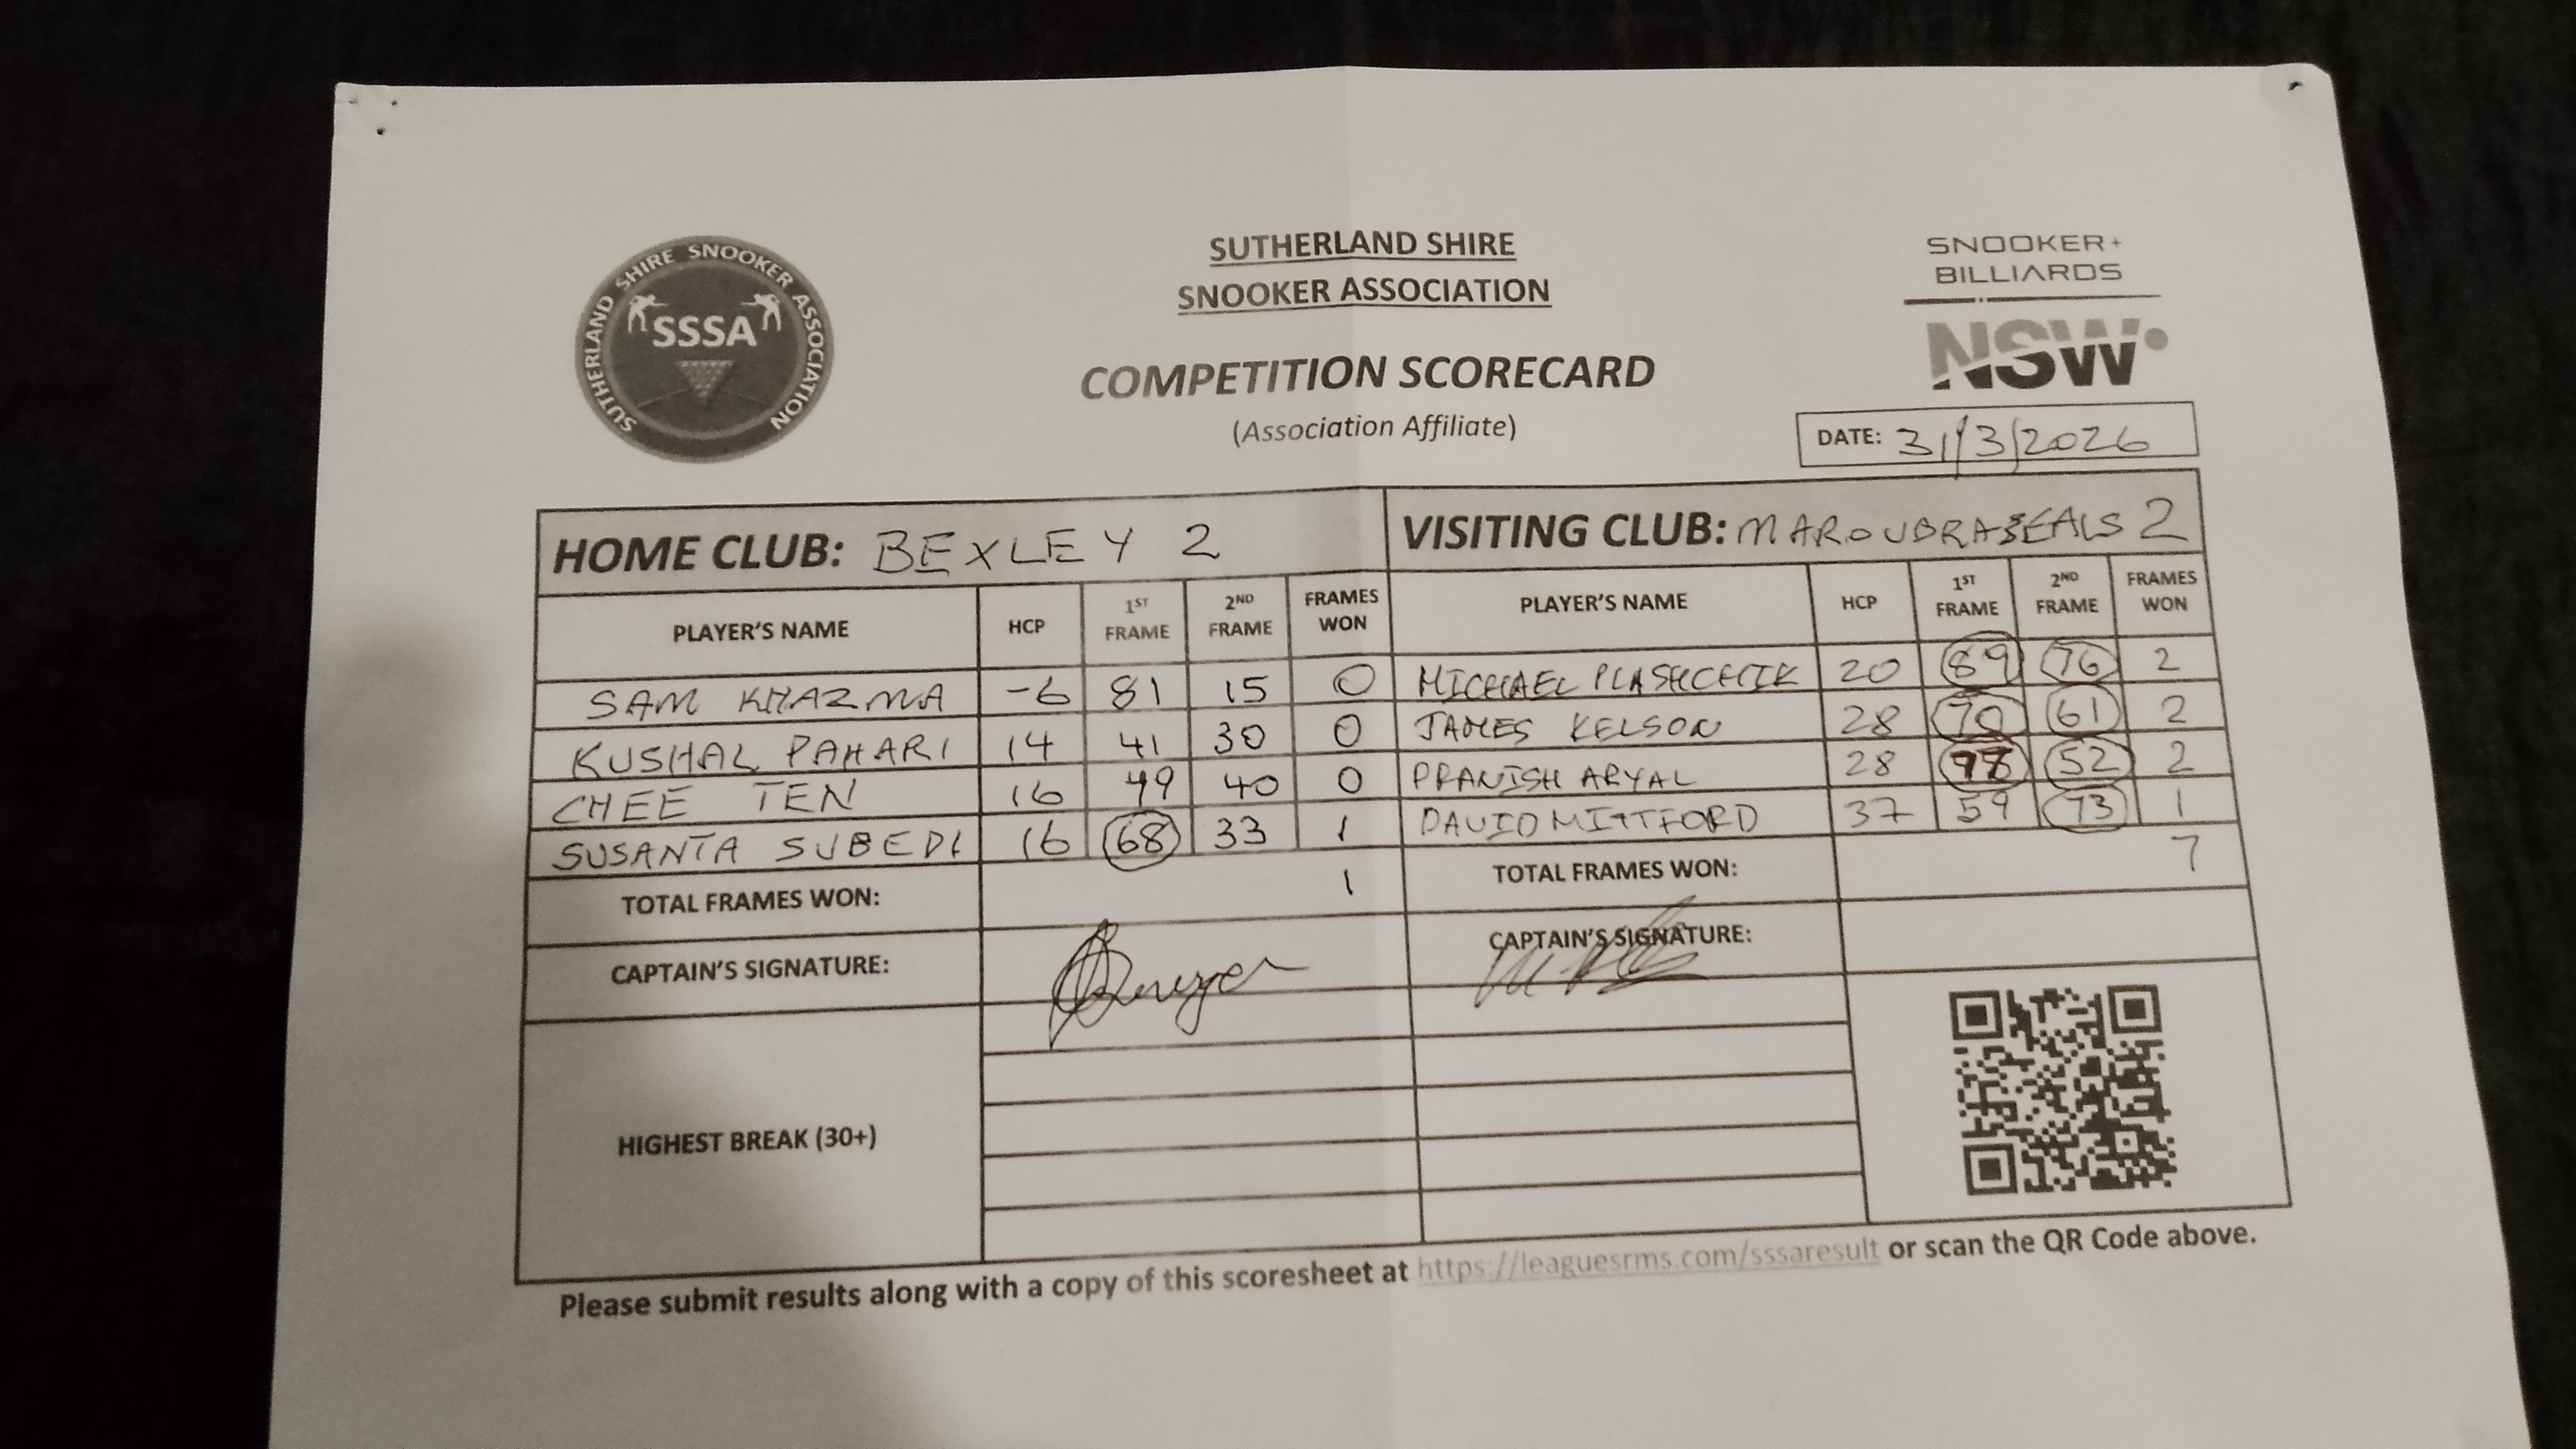 SUTHERLAND SHIRE SNOOKER ASSOCIATION
SSSA
SUTHERLAND SHIRE
SNOOKER ASSOCIATION
COMPETITION SCORECARD
(Association Affiliate)
SNOOKER+
BILLIARDS
NSW
DATE: 31/3/2026
HOME CLUB: BEXLEY 2 VISITING CLUB: MAROUBRA SEALS 2
PLAYER'S NAME HCP 1ST FRAME 2ND FRAME FRAMES WON PLAYER'S NAME HCP 1ST FRAME 2ND FRAME FRAMES WON
SAM KHAZMA -6 81 15 0 MICHAEL PLASHCHIK 20 89 76 2
KUSHAL PAHARI 14 41 30 0 JAMES KELSON 28 70 61 2
CHEE TEN 16 49 40 0 PRANISH ARYAL 28 52 2
SUSANTA SUBEDI 16 68 33 1 DAVID MITTFORD 37 59 73 1
TOTAL FRAMES WON: 1 TOTAL FRAMES WON: 7
CAPTAIN'S SIGNATURE: CAPTAIN'S SIGNATURE:
HIGHEST BREAK (30+)
Please submit results along with a copy of this scoresheet at https://leaguesrms.com/sssaresult or scan the QR Code above.